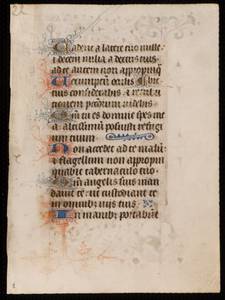 Cadent a latere tuo mille
et decem milia a dextris tuis
ad te autem non appropinq
oculis
tuis considerabis et retribu
cionem peccatorum videbis
Quoniam tu es domine spes me
a altissimum posuisti refugi
um tuum
Non accedet ad te malum
et flagellum non appropin
quabit tabernaculo tuo
angelis suis man
davit de te ut custodiant te
in omnibus viis tuis
In manibus portabunt